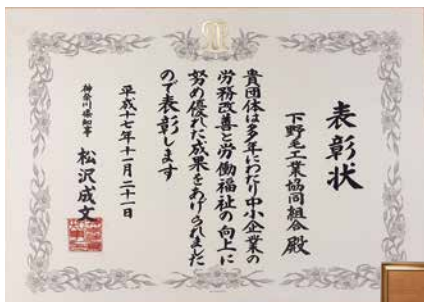 表彰状
下野毛工業協同組合 殿
貴団体は多年にわたり中小企業の
労務改善と労働福祉の向上に
努め優れた成果をあげられました
ので表彰します
平成十七年十一月二十一日
神奈川県知事 松沢成文